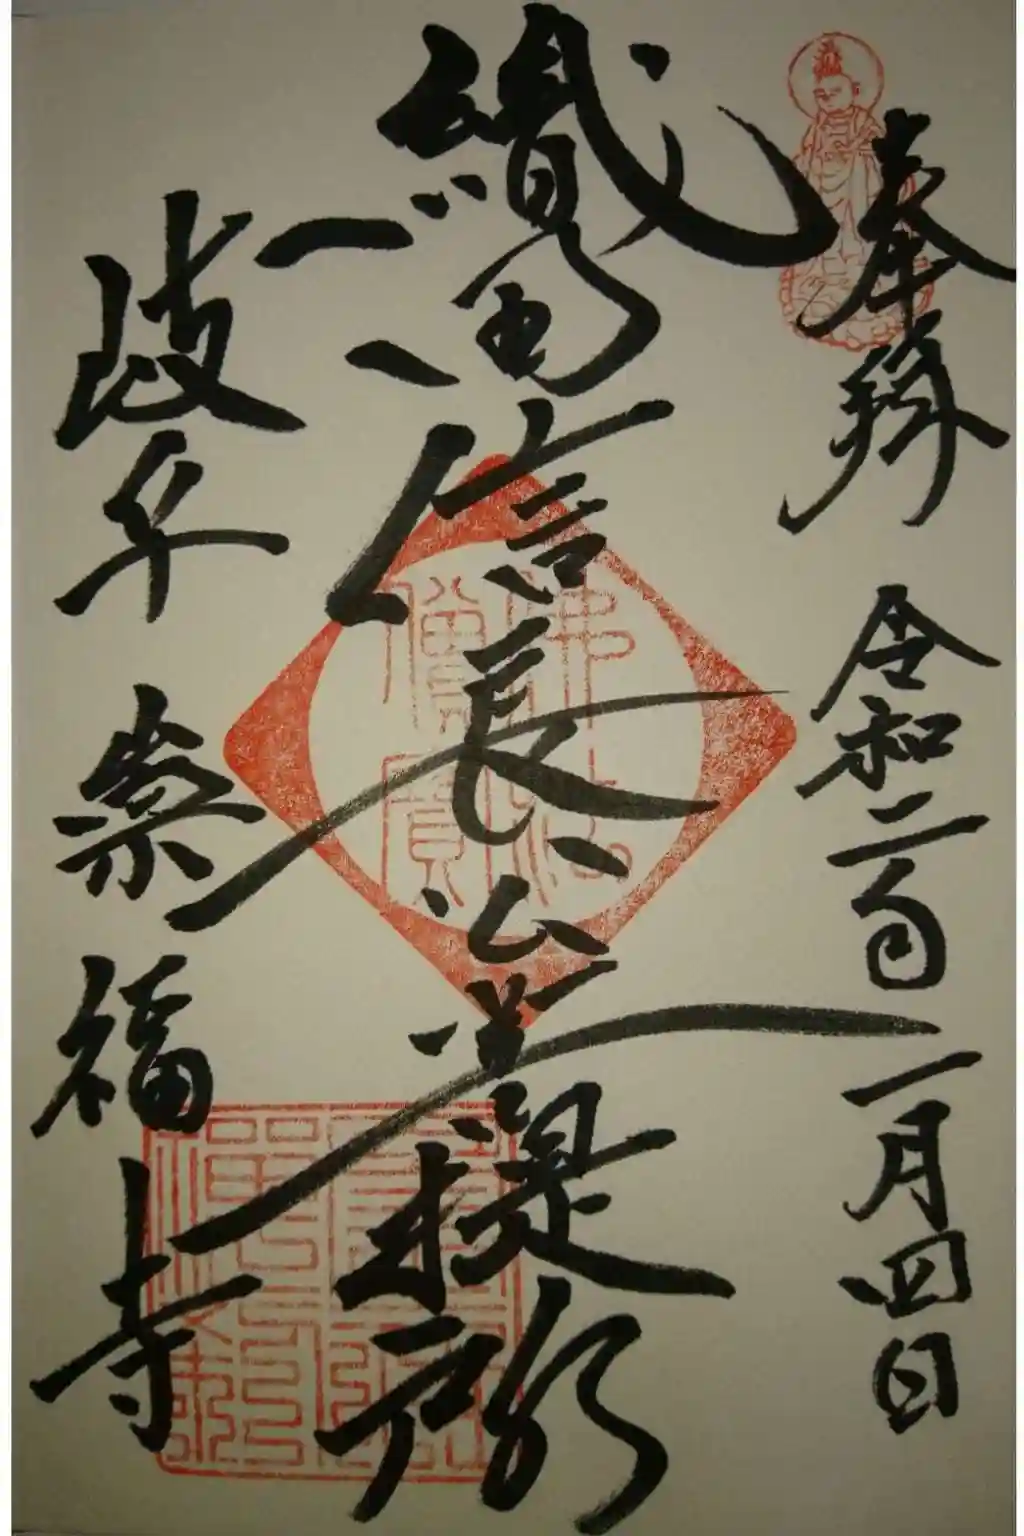 奉拝 令和二年一月四日
織田信長公菩提所
岐阜 崇福寺
佛法僧寳